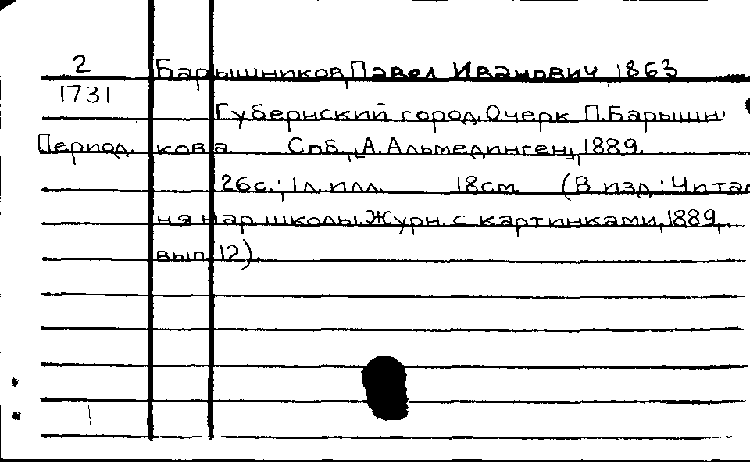 2 Барышников, Павел Иванович, 1863
1731
Губернский город. Очерк П. Барышни-
Период. кова Спб., А. Альмединген, 1889.
26с.; 1л. илл. 18см (В изд.: Читаль
ня нар. школы. Журн. с картинками, 1889,
вып. 12).